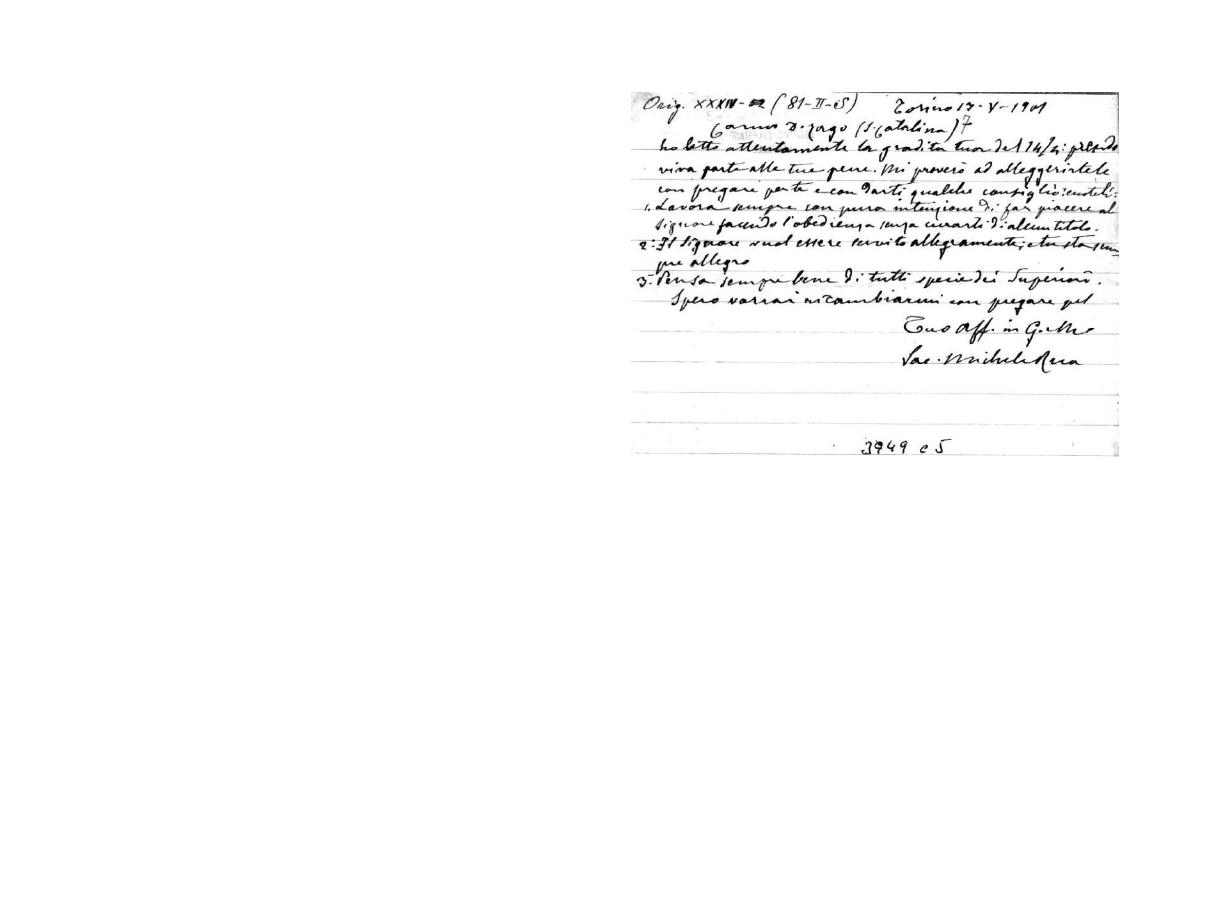 Orig. XXXIV- (81-II-S) Torino 17-V-1901
Carmo D. Zago (S. Catalina) 7
ho letto attentamente la gradita tua del 14/4: prendo
viva parte alle tue pene. Mi proverò ad alleggerirtele
con pregare per te e con darti qualche consiglio:
1. Lavora sempre con pura intenzione di far piacere al
Signore facendo l'obedienza senza curarti di alcun titolo.
2: Il Signore vuol essere servito allegramente; e tu sta sem
pre allegro
3. Pensa sempre bene di tutti specie dei Superiori.
Spero vorrai ricambiarmi con pregare pel
Tuo aff. in G. e M.
Sac. Michele Rua
3949 c 5